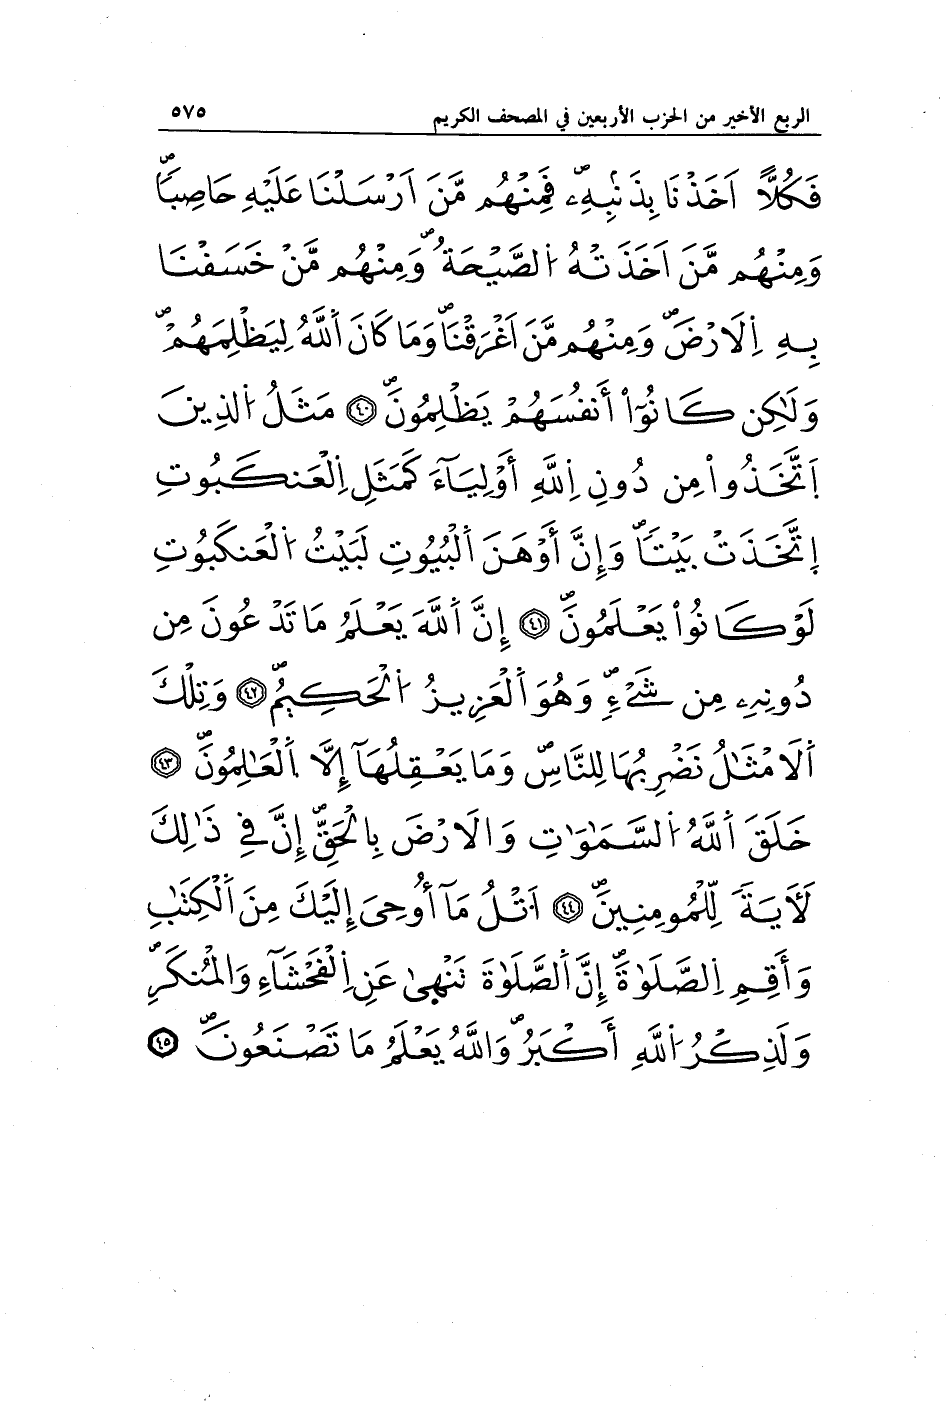 الربع الأخير من الحزب الأربعين في المصحف الكريم ٥٧٥
فَكُلّاً اَخَذْنَا بِذَنۢبِهِۦ فَمِنْهُم مَّنَ اَرْسَلْنَا عَلَيْهِ حَاصِباً
وَمِنْهُم مَّنَ اَخَذَتْهُ اُلصَّيْحَةُ وَمِنْهُم مَّنْ خَسَفْنَا
بِهِ اِلَارْضَ وَمِنْهُم مَّنَ اَغْرَقْنَا وَمَا كَانَ اَللَّهُ لِيَظْلِمَهُمْ
وَلَٰكِن كَانُوٓاْ أَنفُسَهُمْ يَظْلِمُونَ ٤٠ مَثَلُ اُلذِينَ
اَتَّخَذُواْ مِن دُونِ اِللَّهِ أَوْلِيَآءَ كَمَثَلِ اِلْعَنكَبُوتِ
اِتَّخَذَتْ بَيْتاً وَإِنَّ أَوْهَنَ اَلْبُيُوتِ لَبَيْتُ اُلْعَنكَبُوتِ
لَوْ كَانُواْ يَعْلَمُونَ ٤١ إِنَّ اَللَّهَ يَعْلَمُ مَا تَدْعُونَ مِن
دُونِهِۦ مِن شَےْءٍ وَهُوَ اَلْعَزِيزُ اُلْحَكِيمُ ٤٢ وَتِلْكَ
اَلَامْثَٰلُ نَضْرِبُهَا لِلنَّاسِ وَمَا يَعْقِلُهَآ إِلَّا اَلْعَٰلِمُونَ ٤٣
خَلَقَ اَللَّهُ اُلسَّمَٰوَٰتِ وَالَارْضَ بِالْحَقِّ إِنَّ فِي ذَٰلِكَ
لَأَيَةً لِّلْمُومِنِينَ ٤٤ اَتْلُ مَآ أُوحِىَ إِلَيْكَ مِنَ اَلْكِتَٰبِ
وَأَقِمِ اِلصَّلَوٰةَ إِنَّ اَلصَّلَوٰةَ تَنْهَىٰ عَنِ اِلْفَحْشَآءِ وَالْمُنكَرِ
وَلَذِكْرُ اُللَّهِ أَكْبَرُ وَاللَّهُ يَعْلَمُ مَا تَصْنَعُونَ ٤٥